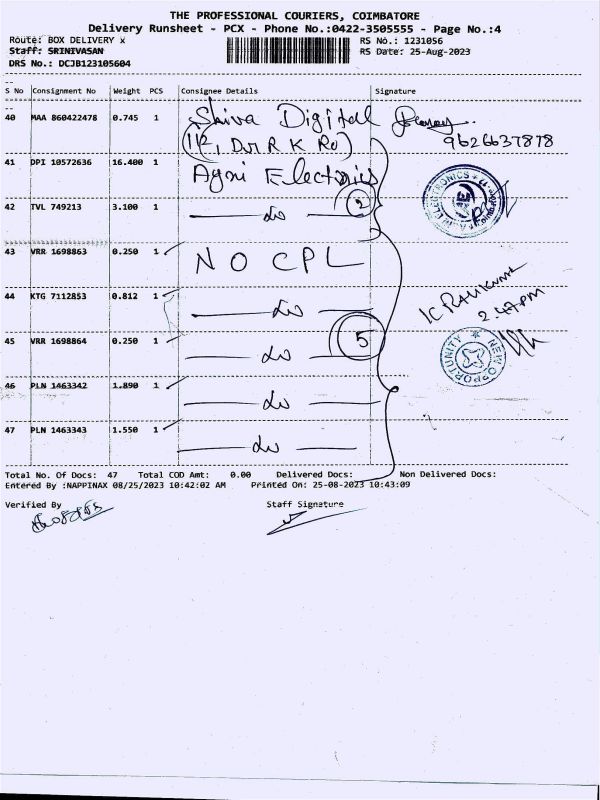 THE PROFESSIONAL COURIERS, COIMBATORE
Delivery Runsheet - PCX - Phone No.:0422-3505555 - Page No.:4
Route: BOX DELIVERY x
RS No.: 1231056
Staff: SRINIVASAN
RS Date: 25-Aug-2023
DRS No.: DCJB123105604
S No Consignment No Weight PCS Consignee Details Signature
40 MAA 860422478 0.745 1 Shiva Digital
9626637878
(112, Dr R K Rd)
41 DPI 10572636 16.400 1 Agni Electronics
42 TVL 749213 3.100 1 do 2
43 VRR 1698863 0.250 1 NO CPL
44 KTG 7112853 0.812 1 do
2.47PM
45 VRR 1698864 0.250 1 do 5
NEW OPPORTUNITY
46 PLN 1463342 1.890 1 do
47 PLN 1463343 1.550 1 do
Total No. Of Docs: 47 Total COD Amt: 0.00 Delivered Docs: Non Delivered Docs:
Entered By :NAPPINAX 08/25/2023 10:42:02 AM Printed On: 25-08-2023 10:43:09
Verified By Staff Signature